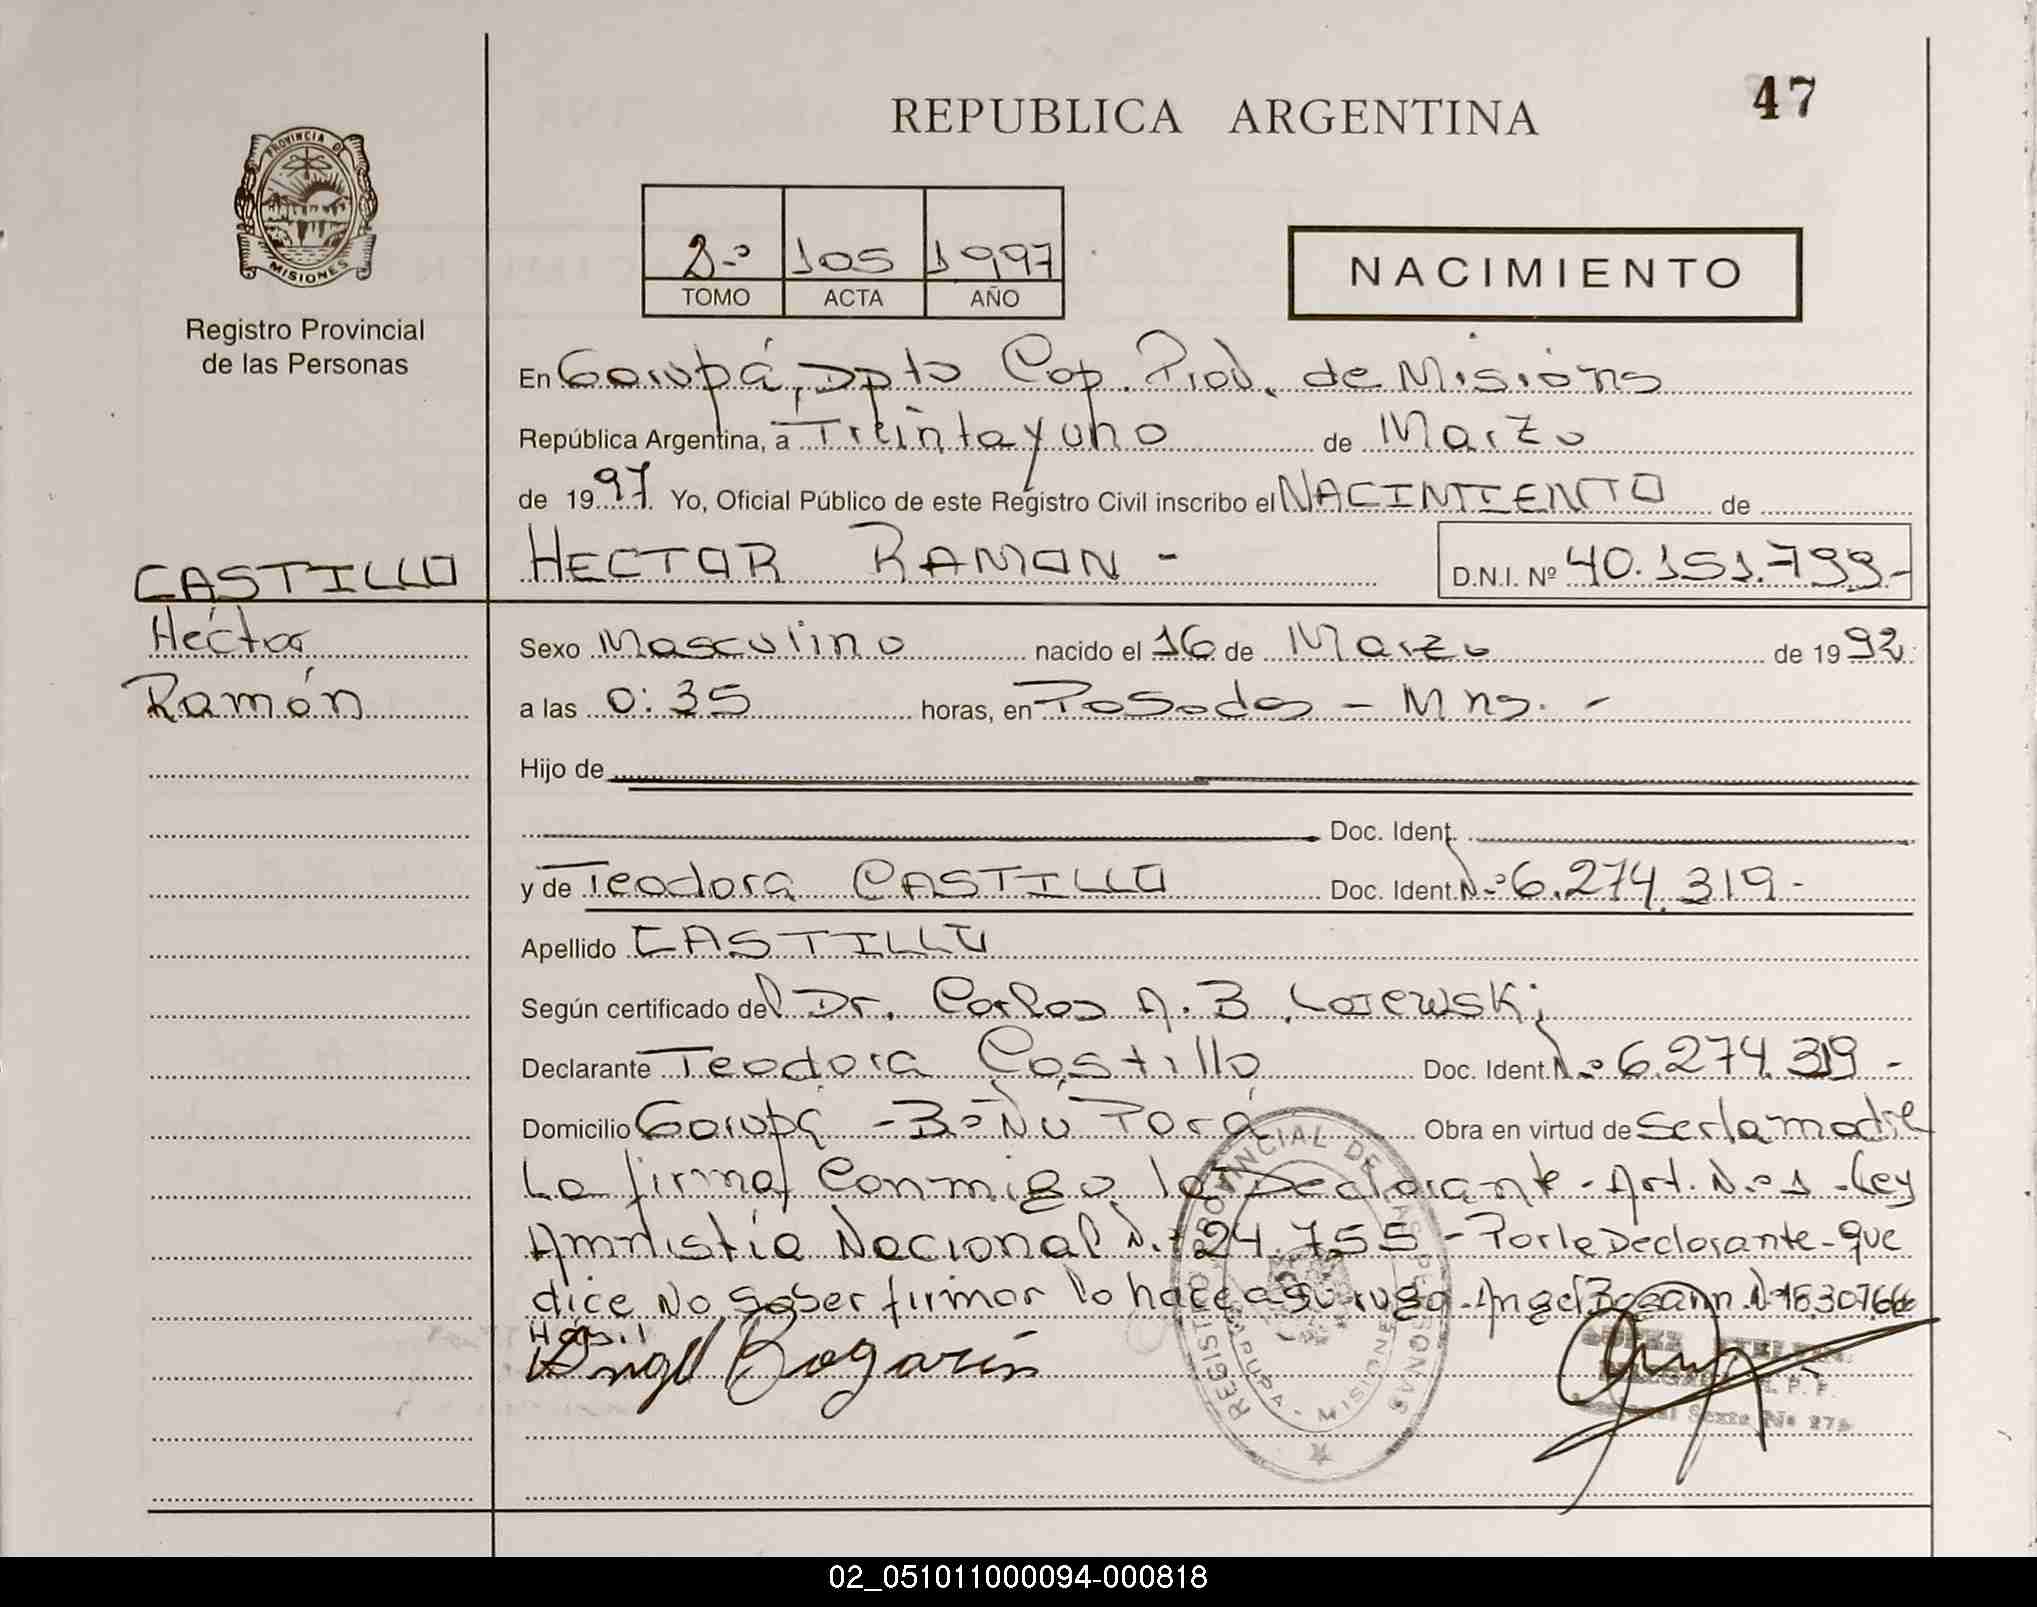 47
REPUBLICA ARGENTINA
PROVINCIA DE
MISIONES
Registro Provincial
de las Personas
2º 105 1997
TOMO ACTA AÑO
NACIMIENTO
En Garupá, Dpto Cap. Prov. de Misions
República Argentina, a Treinta y uno de Marzo
de 1997. Yo, Oficial Público de este Registro Civil inscribo el NACIMIENTO de
CASTILLO
HECTOR RAMON - D.N.I. Nº 40.151.799-
Héctor
Ramón
Sexo Masculino nacido el 16 de Marzo de 1992
a las 0:35 horas, en Posadas - Mns. -
Hijo de
Doc. Ident.
y de Teodora CASTILLO Doc. Ident. Nº 6.274.319-
Apellido CASTILLO
Según certificado del Dr. Carlos A. B.
Declarante Teodora Castillo Doc. Ident. Nº 6.274.319-
Domicilio Garupá - Bº Ñu Porá Obra en virtud de ser la madre
La firma conmigo la Declarante - Art. Nº 1 - Ley
Amnistía Nacional Nº 24.755 - Por la Declarante - que
dice No saber firmar lo hace a su ruego - Angel
Hábil
Angel Bogarín
REGISTRO PROVINCIAL DE LAS PERSONAS
GARUPA - MISIONES
02_051011000094-000818